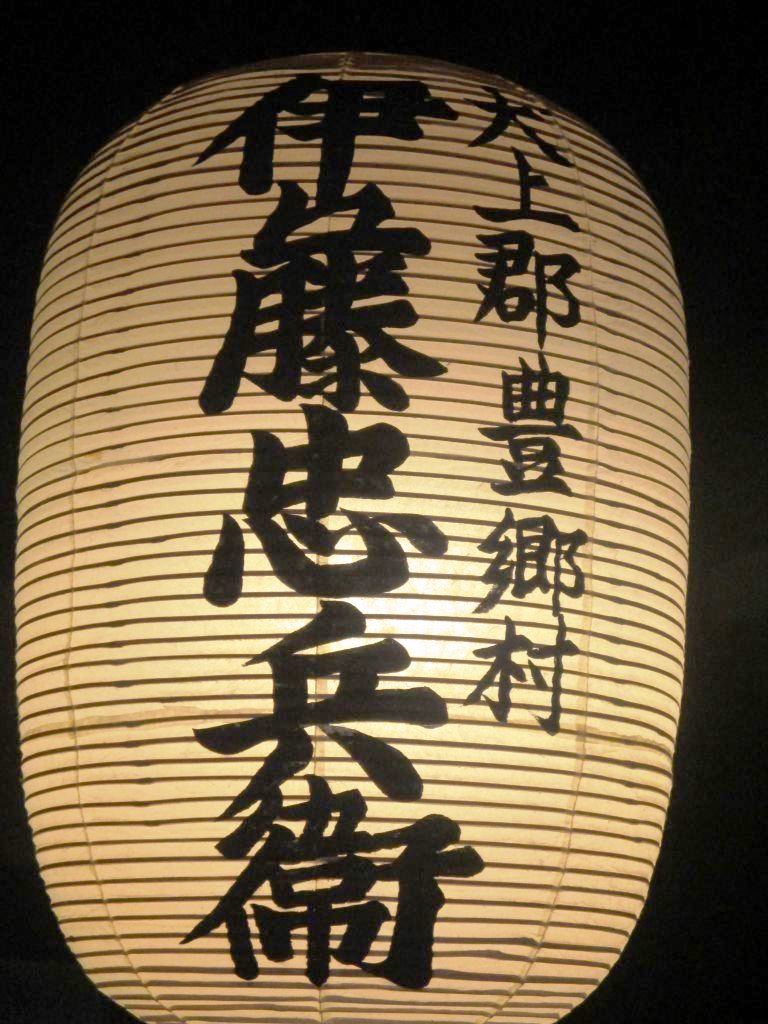 犬上郡豊郷村
伊藤忠兵衛